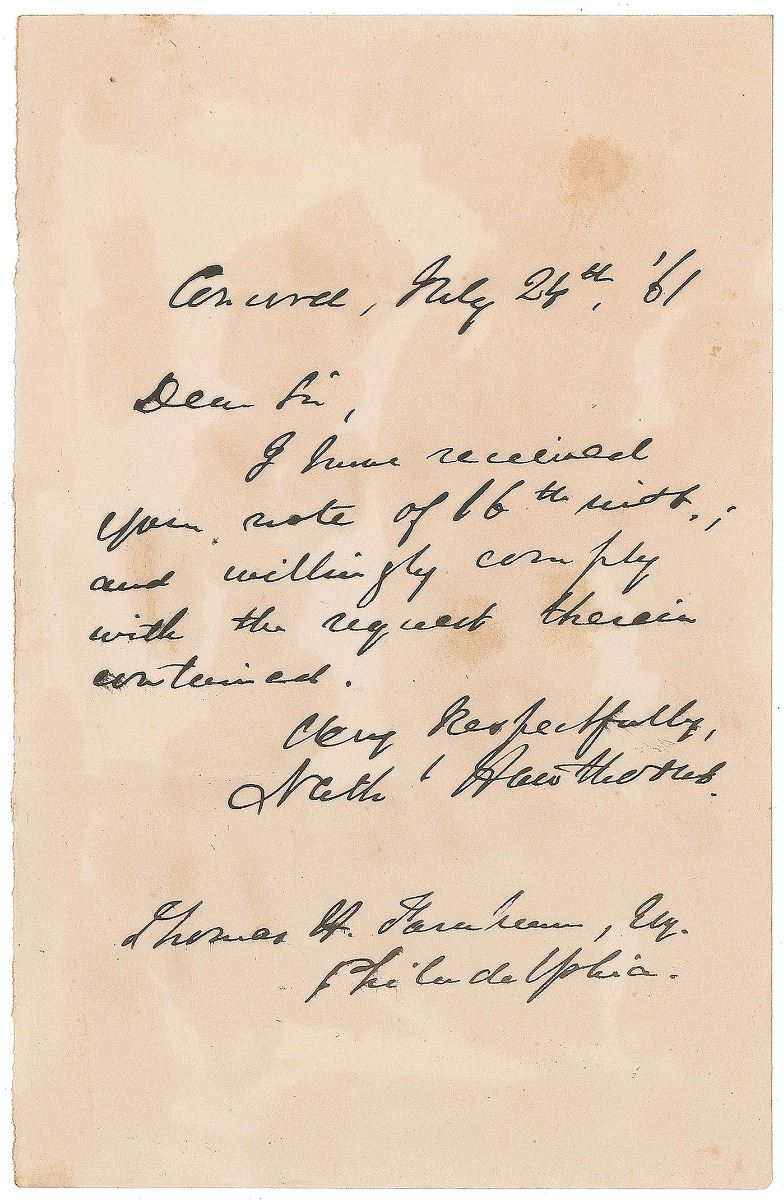 Concord, July 26th, '61
Dear Sir,
I have received
your note of 16th inst.;
and willingly comply
with the request therein
contained.
Very Respectfully,
Nathl Hawthorne.
Thomas H. Esq.
Philadelphia.